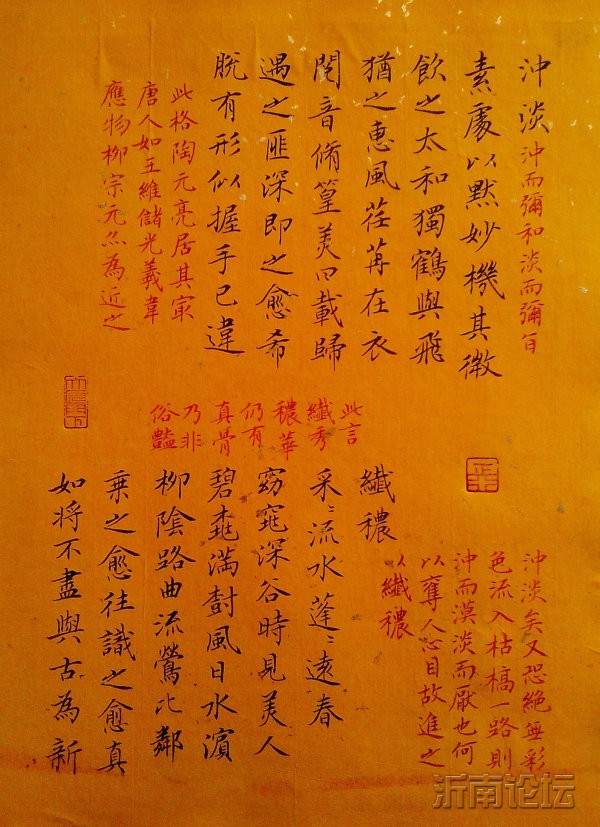 沖淡 沖而彌和淡而彌旨
素處以默妙機其微
飲之太和獨鶴與飛
猶之惠風荏苒在衣
閱音脩篁美曰載歸
遇之匪深即之愈希
脫有形似握手已違
此格陶元亮居其最
唐人如王維儲光羲韋
應物柳宗元亦為近之
沖淡矣又恐絕無彩
色流入枯槁一路則
沖而漠淡而厭也何
以奪人心目故進之
以纖穠
纖穠
此言
纖秀
穠華
仍有
真骨
乃非
俗豔
采〻流水蓬〻遠春
窈窕深谷時見美人
碧桃滿樹風日水濱
柳陰路曲流鶯比鄰
乘之愈往識之愈真
如將不盡與古為新
沂南论坛